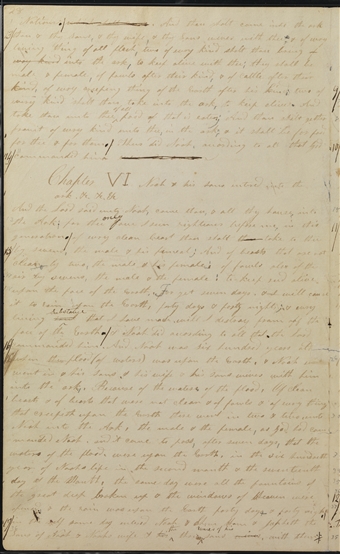 And thou shalt come into the ark
thou & thy sons, & thy wife, & thy sons wives with thee; & of every
living thing of all flesh, two of every kind shalt thou bring
into the ark, to keep alive with thee; they shall be
male & female; of fowls after their kind, & of cattle after their
kind, of every creeping thing of the Earth after his kind; two of
every kind shalt thou take into the ark, to keep alive. And
take thou unto thee of all food that is eaten; And thou shalt gather
unto thee, in the ark, & it shall be for food
for thee & for them; thus did Noah, according to all that God
commanded him
Chapter VI Noah & his sons entered into the
ark &c &c
And the Lord said unto Noah, come thou, & all thy house, into
the Ark; for thee only have I seen righteous before me, in this
generation; of every clean beast thou shalt take to thee
by sevens, the male & his female; And of beasts that are not
clean by two, the male & his female; of fowls also of the
air by sevens, the male & the female; to keep seed alive,
upon the face of the earth; For yet seven days, & I will cause
it to rain upon the Earth, forty days & forty nights; & every
living substance that I have made will I destroy from off the
face of the Earth; & Noah did according to all that the Lord
commanded him. And Noah was six hundred years old
when the flood of waters was upon the Earth, & Noah
went in & his sons, & his wife & his sons wives, with him
into the ark, Because of the waters of the flood. Of clean
beasts & of beasts that were not clean & of fowls & of every thing
that creepeth upon the Earth there went in two & two unto
Noah into the Ark, the male & the female, as God had com-
manded Noah. and it came to pass, after seven days, that the
waters of the flood, were upon the Earth, in the six hundredth
year of Noahs life in the second month & the seventeenth
day of the Month, the same day were all the fountains of
the great deep broken up & the windows of Heaven were
& the rain was upon the Earth forty days &
same day entered Noah & Ham, & Japheth the
Sons of Noah & Noahs wife, & the three wives of his with them